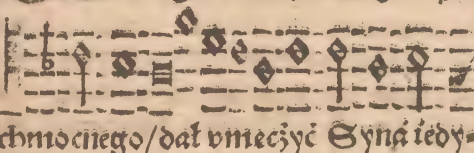 chmocnego/dał vmęcżyć Syná iedy-